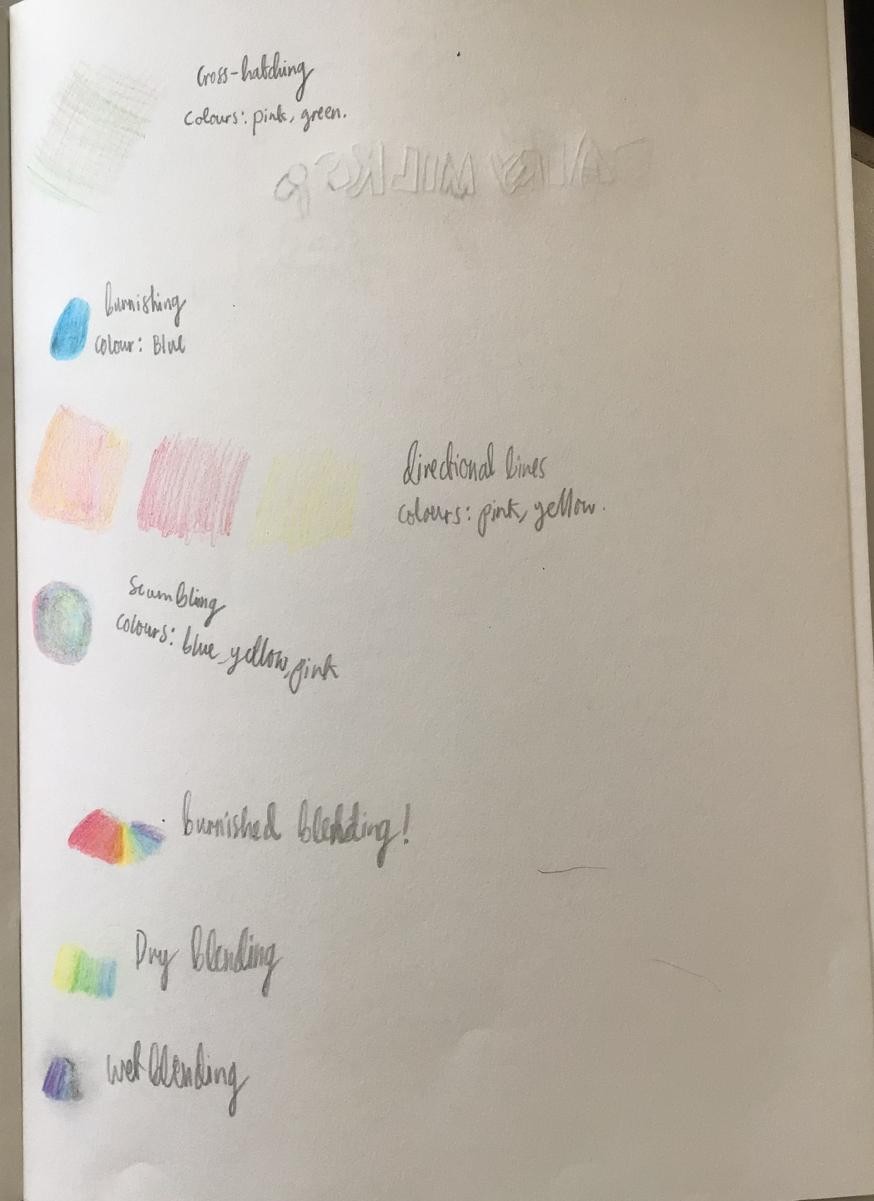 Cross-hatching
Colours: pink, green.
burnishing
Colour: Blue
directional lines
colours: pink, yellow.
Scumbling
Colours: blue, yellow, pink
burnished blending!
Dry blending
wet blending